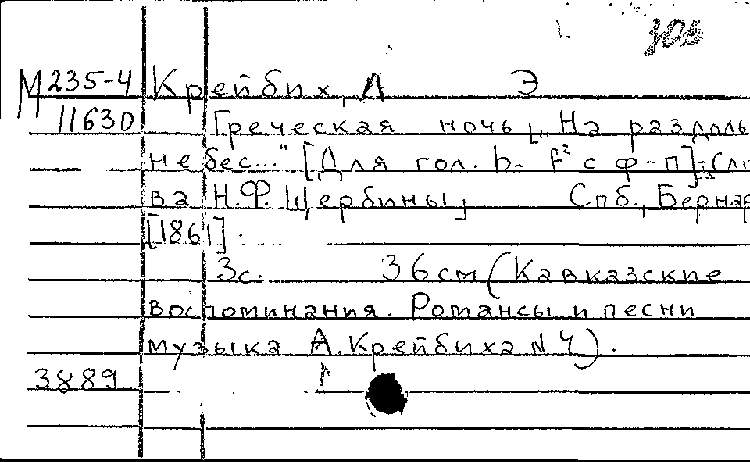 306
М 235-4 Крейбих, А Э
11630 Греческая ночь „На раздоль
небес..." [Для гол. b- f² с ф-п] : Сло
ва Н.Ф. Щербины, Спб., Бернар
[1861].
3с. 36см (Кавказские
воспоминания. Романсы и песни
музыка А. Крейбиха N 4).
3889